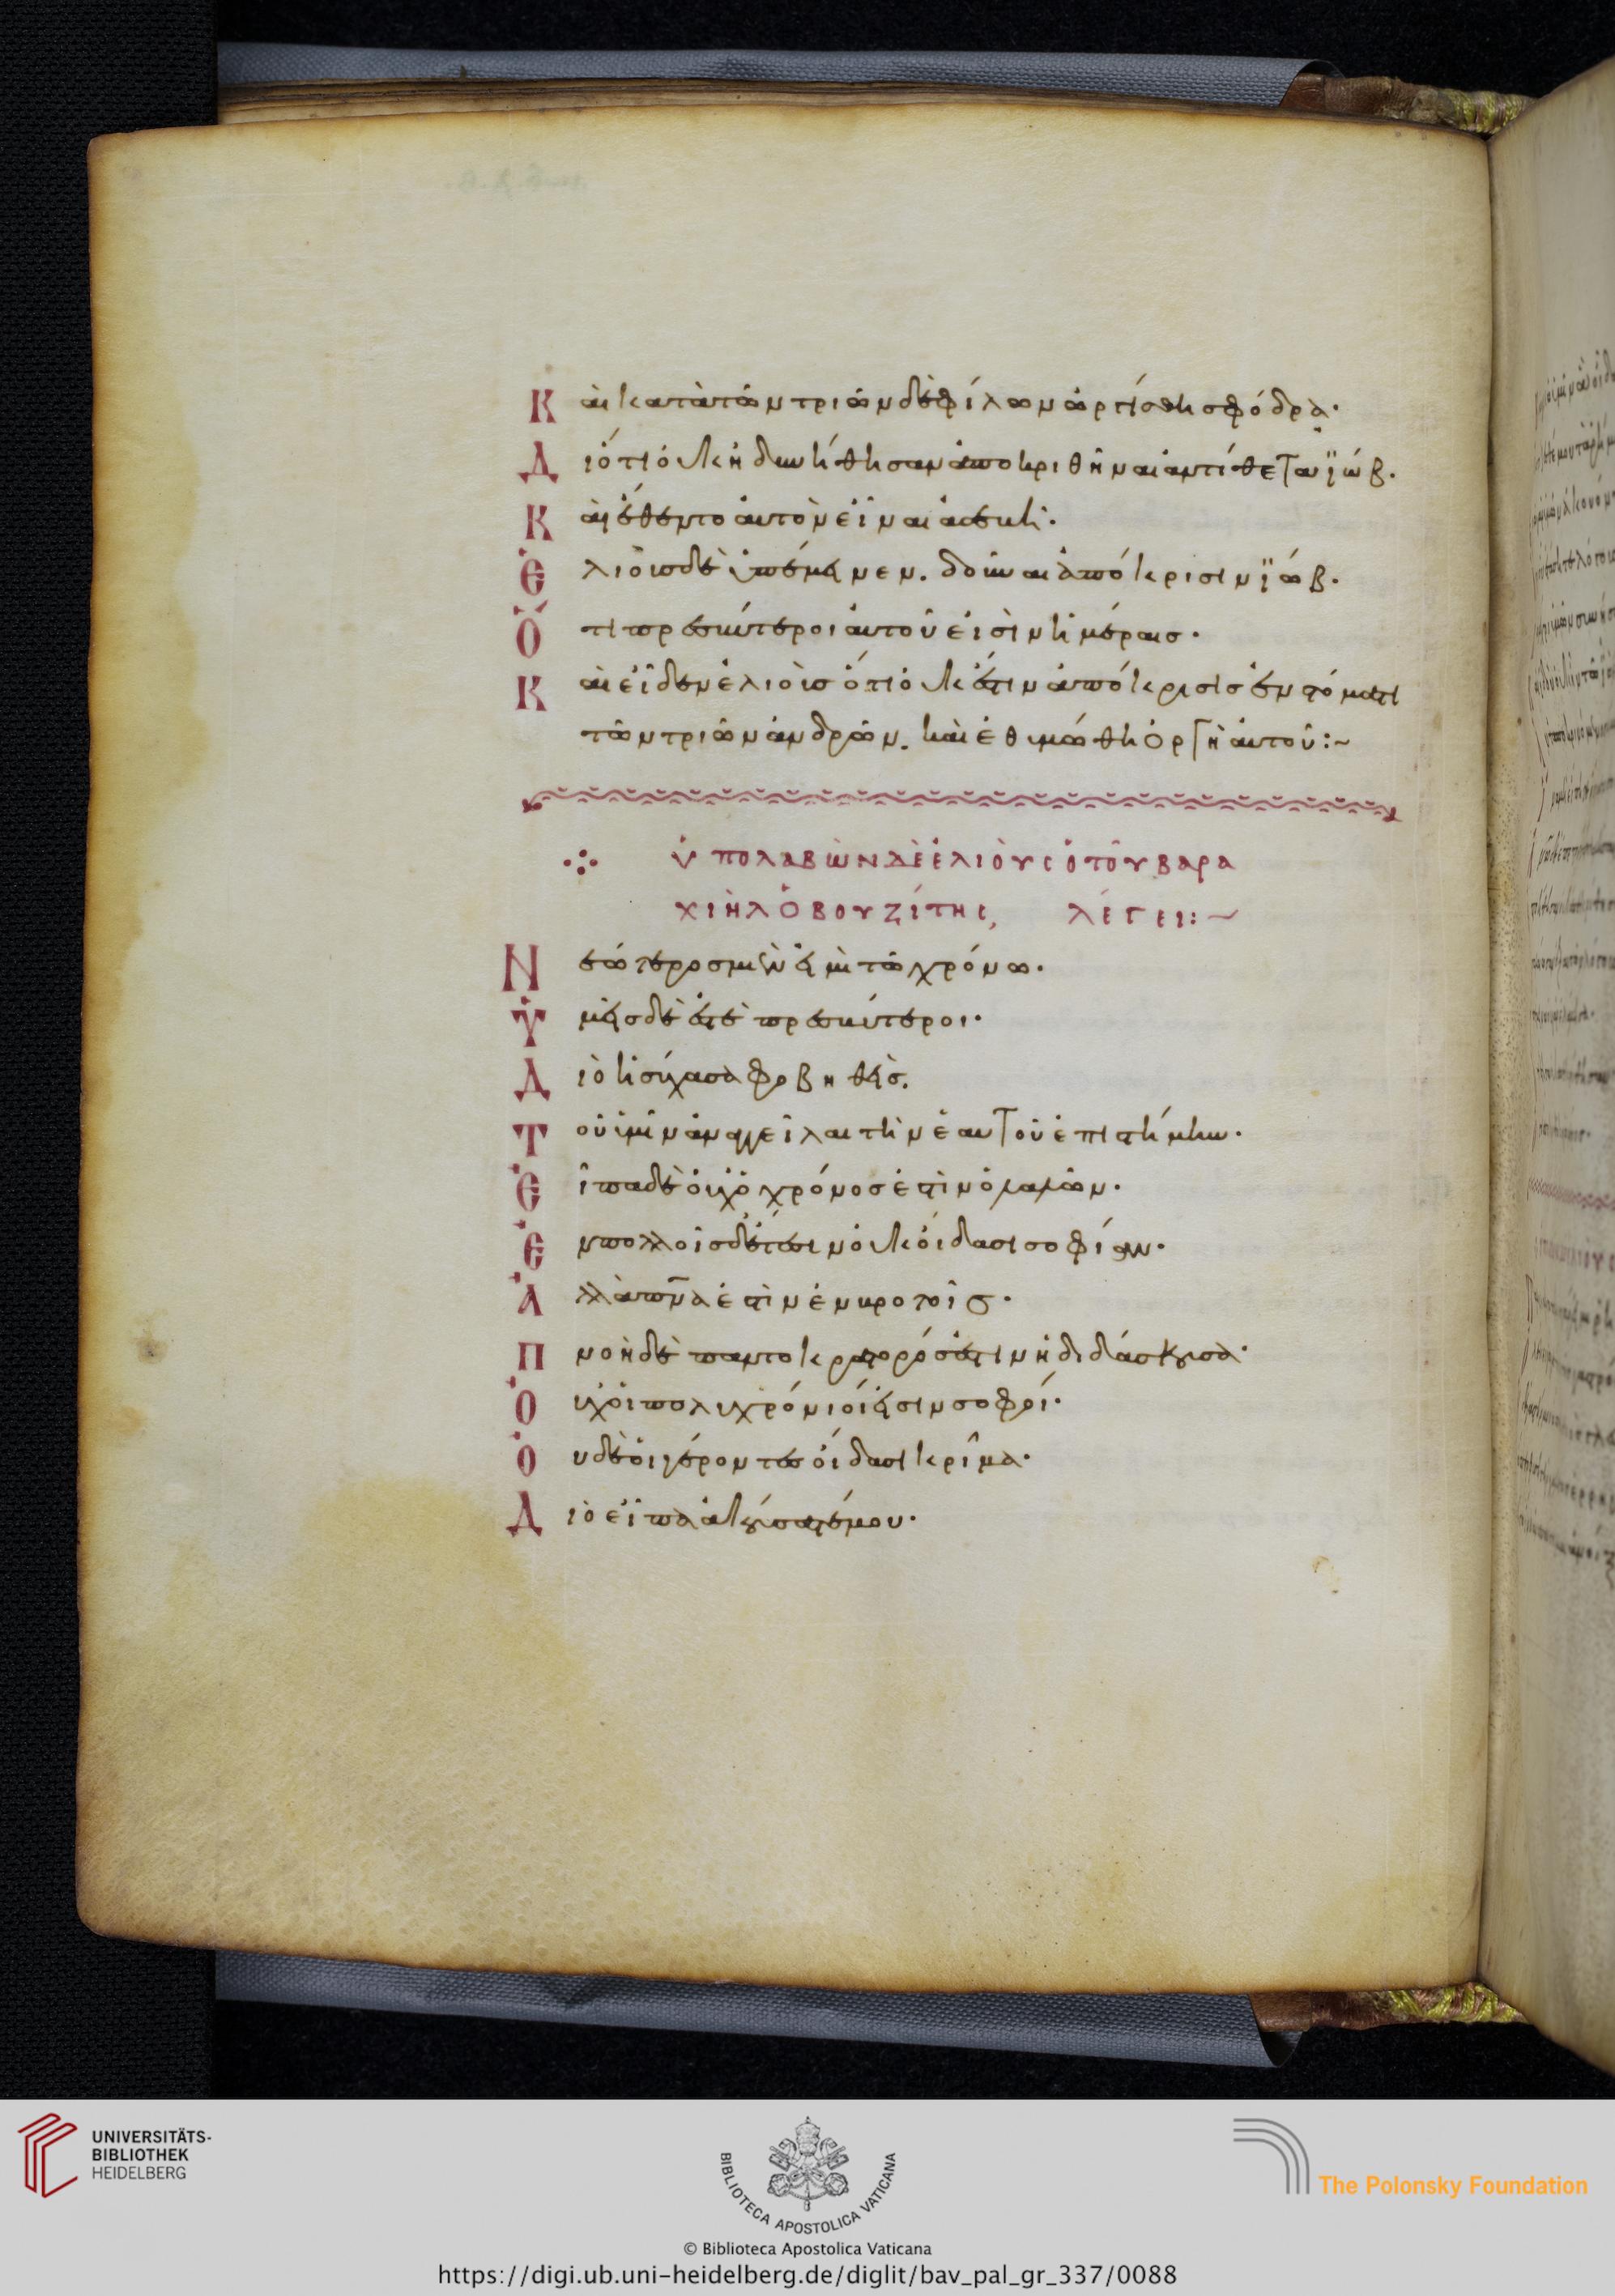 Καὶ κατὰ τῶν τριῶν δὲ φίλων ὠργίσθη σφόδρα·
Διότι οὐκ ἠδυνήθησαν ἀποκριθῆναι ἀντίθετα ϊώβ.
Καὶ ἔθεντο αὐτὸν εἶναι ἀσεβῆ·
Ἐλιοῦς δὲ ὑπέμεινεν. δοῦναι ἀπόκρισιν ϊώβ.
Ὅτι πρεσβύτεροι αὐτοῦ εἰσὶν ἡμέραις·
Καὶ εἶδεν ἐλιοὺς ὅτι οὐκ ἔστιν ἀπόκρισις ἐν στόματι
τῶν τριῶν ἀνδρῶν. καὶ ἐθυμώθη ὀργῆ αὐτοῦ:~
ὑπολαβὼν δὲ ἐλιοὺς ὁ τοῦ βαρα
χιὴλ ὁ βουζίτης, λέγει:~
Νεώτερος μὲν εἰμὶ τῶ χρόνω·
Ὑμεῖς δὲ ἐστὲ πρεσβύτεροι·
Διὸ ἡσύχασα φοβηθεὶς.
Τοῦ ὑμῖν ἀναγγεῖλαι τὴν ἐαυτοῦ ἐπιστήμην·
Εἶπα δὲ οὐχ ὁ χρόνος ἐστὶν ὁ λαλῶν·
Ἐν πολλοῖς δὲ ἔτεσιν οὐκ οἴδασι σοφίαν·
Ἀλλὰ πνα ἐστὶν ἐν βροτοῖς·
Πνοὴ δὲ παντοκράτορός ἐστιν ἡ διδάσκουσα·
Οὐχ οἱ πολυχρόνιοί εἰσιν σοφοί·
Οὐδὲ οἱ γέροντες οἴδασι κρῖμα·
Διὸ εἶπα ἀκούσατέ μου·
UNIVERSITÄTS-
BIBLIOTHEK
HEIDELBERG
BIBLIOTECA APOSTOLICA VATICANA
The Polonsky Foundation
© Biblioteca Apostolica Vaticana
https://digi.ub.uni-heidelberg.de/diglit/bav_pal_gr_337/0088